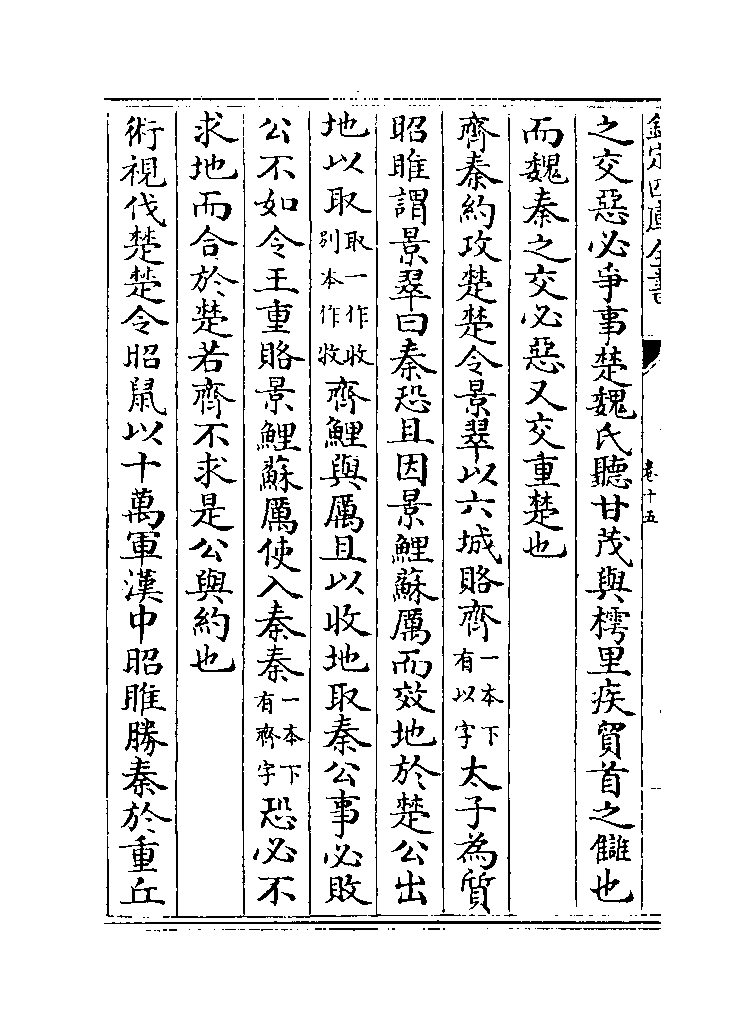 欽定四庫全書
卷十五
之交惡必爭事楚魏氏聽甘茂與樗里疾貿首之讎也
而魏秦之交必惡又交重楚也
齊秦約攻楚楚令景翠以六城賂齊一本下有以字太子為質
昭雎謂景翠曰秦恐且因景鯉蘇厲而效地於楚公出
地以取取一作收別本作收齊鯉與厲且以收地取秦公事必敗
公不如令王重賂景鯉蘇厲使入秦秦一本下有齊字恐必不
求地而合於楚若齊不求是公與約也
術視伐楚楚令昭鼠以十萬軍漢中昭雎勝秦於重丘